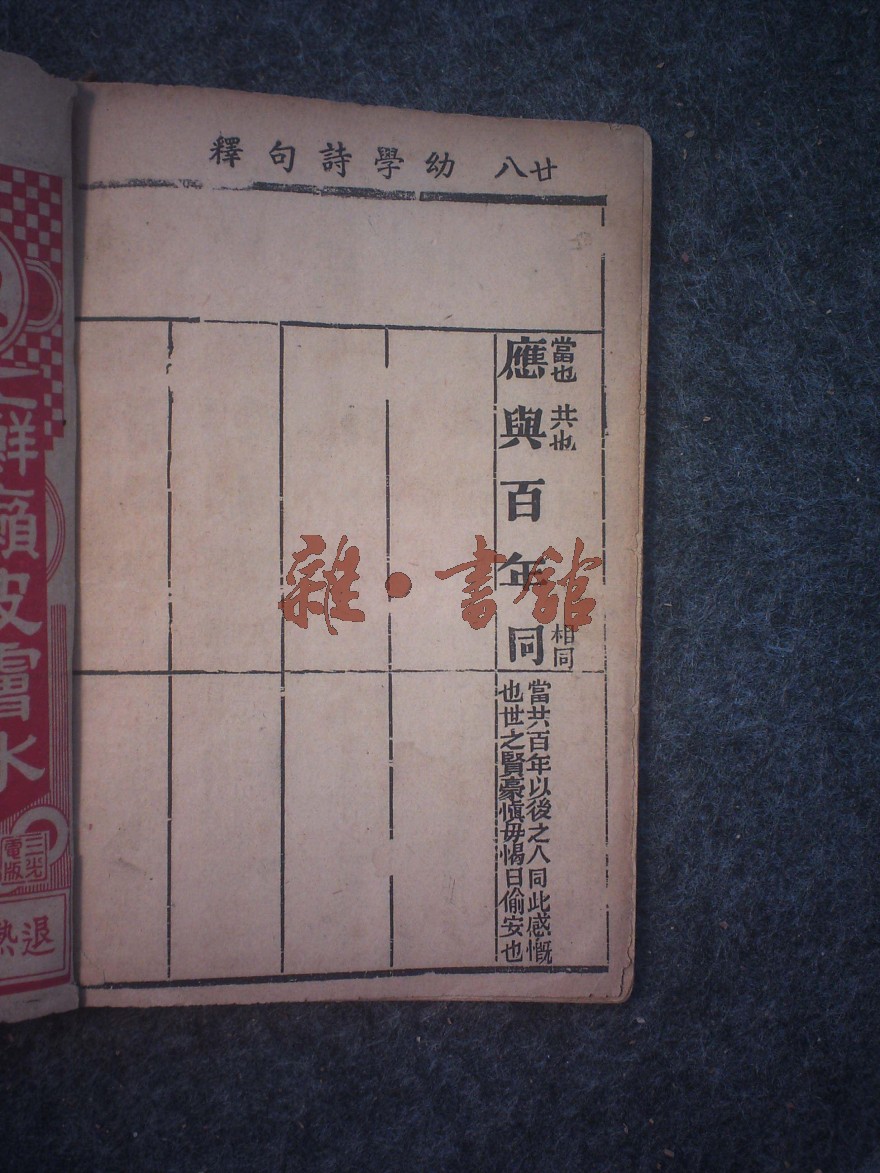 廿八 幼學詩句釋
當也 共也 相同
應與百年同
當共百年以後之人同此感慨
也世之賢豪愼毋愒日偷安也
雜·書館
鮮癩皮膚水
三光
電版
退熱